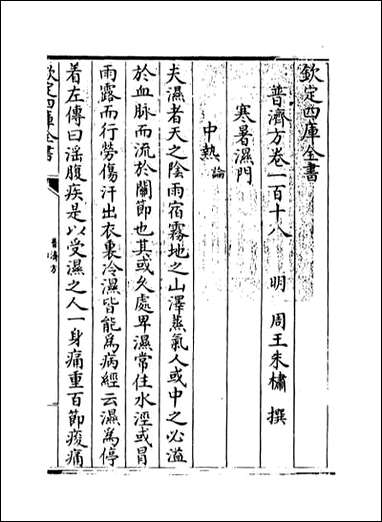 欽定四庫全書
普濟方卷一百十八　明　周王朱橚　撰
寒暑濕門
中熱論
夫濕者天之陰雨宿霧地之山澤蒸氣人或中之必溢
於血脉而流於關節也其或久處卑濕常住水溼或冒
雨露而行勞傷汗出衣裏冷濕皆能為病經云濕為停
着左傳曰淫腹疾是以受濕之人一身痛重百節痠痛
欽定四庫全書
普濟方